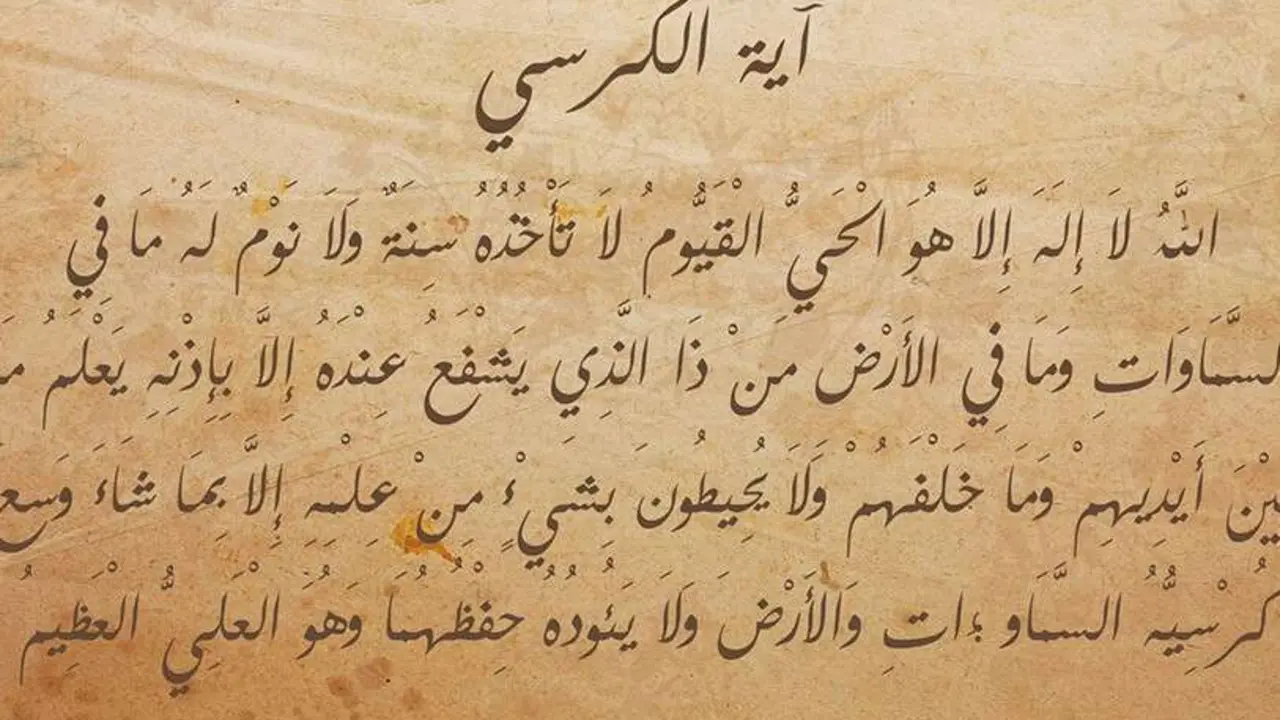 آية الكرسي
اللَّهُ لاَ إِلَهَ إِلاَّ هُوَ الْحَيُّ الْقَيُّومُ لاَ تَأْخُذُهُ سِنَةٌ وَلاَ نَوْمٌ لَهُ مَا فِي
السَّمَاوَاتِ وَمَا فِي الأَرْضِ مَنْ ذَا الَّذِي يَشْفَعُ عِنْدَهُ إِلاَّ بِإِذْنِهِ يَعْلَمُ مَا
بَيْنَ أَيْدِيهِمْ وَمَا خَلْفَهُمْ وَلاَ يُحِيطُونَ بِشَيْءٍ مِنْ عِلْمِهِ إِلاَّ بِمَا شَاءَ وَسِعَ
كُرْسِيُّهُ السَّمَاو ؛اتِ وَالأَرْضَ وَلاَ يَئُودُهُ حِفْظُهُمَا وَهُوَ الْعَلِيُّ الْعَظِيمُ